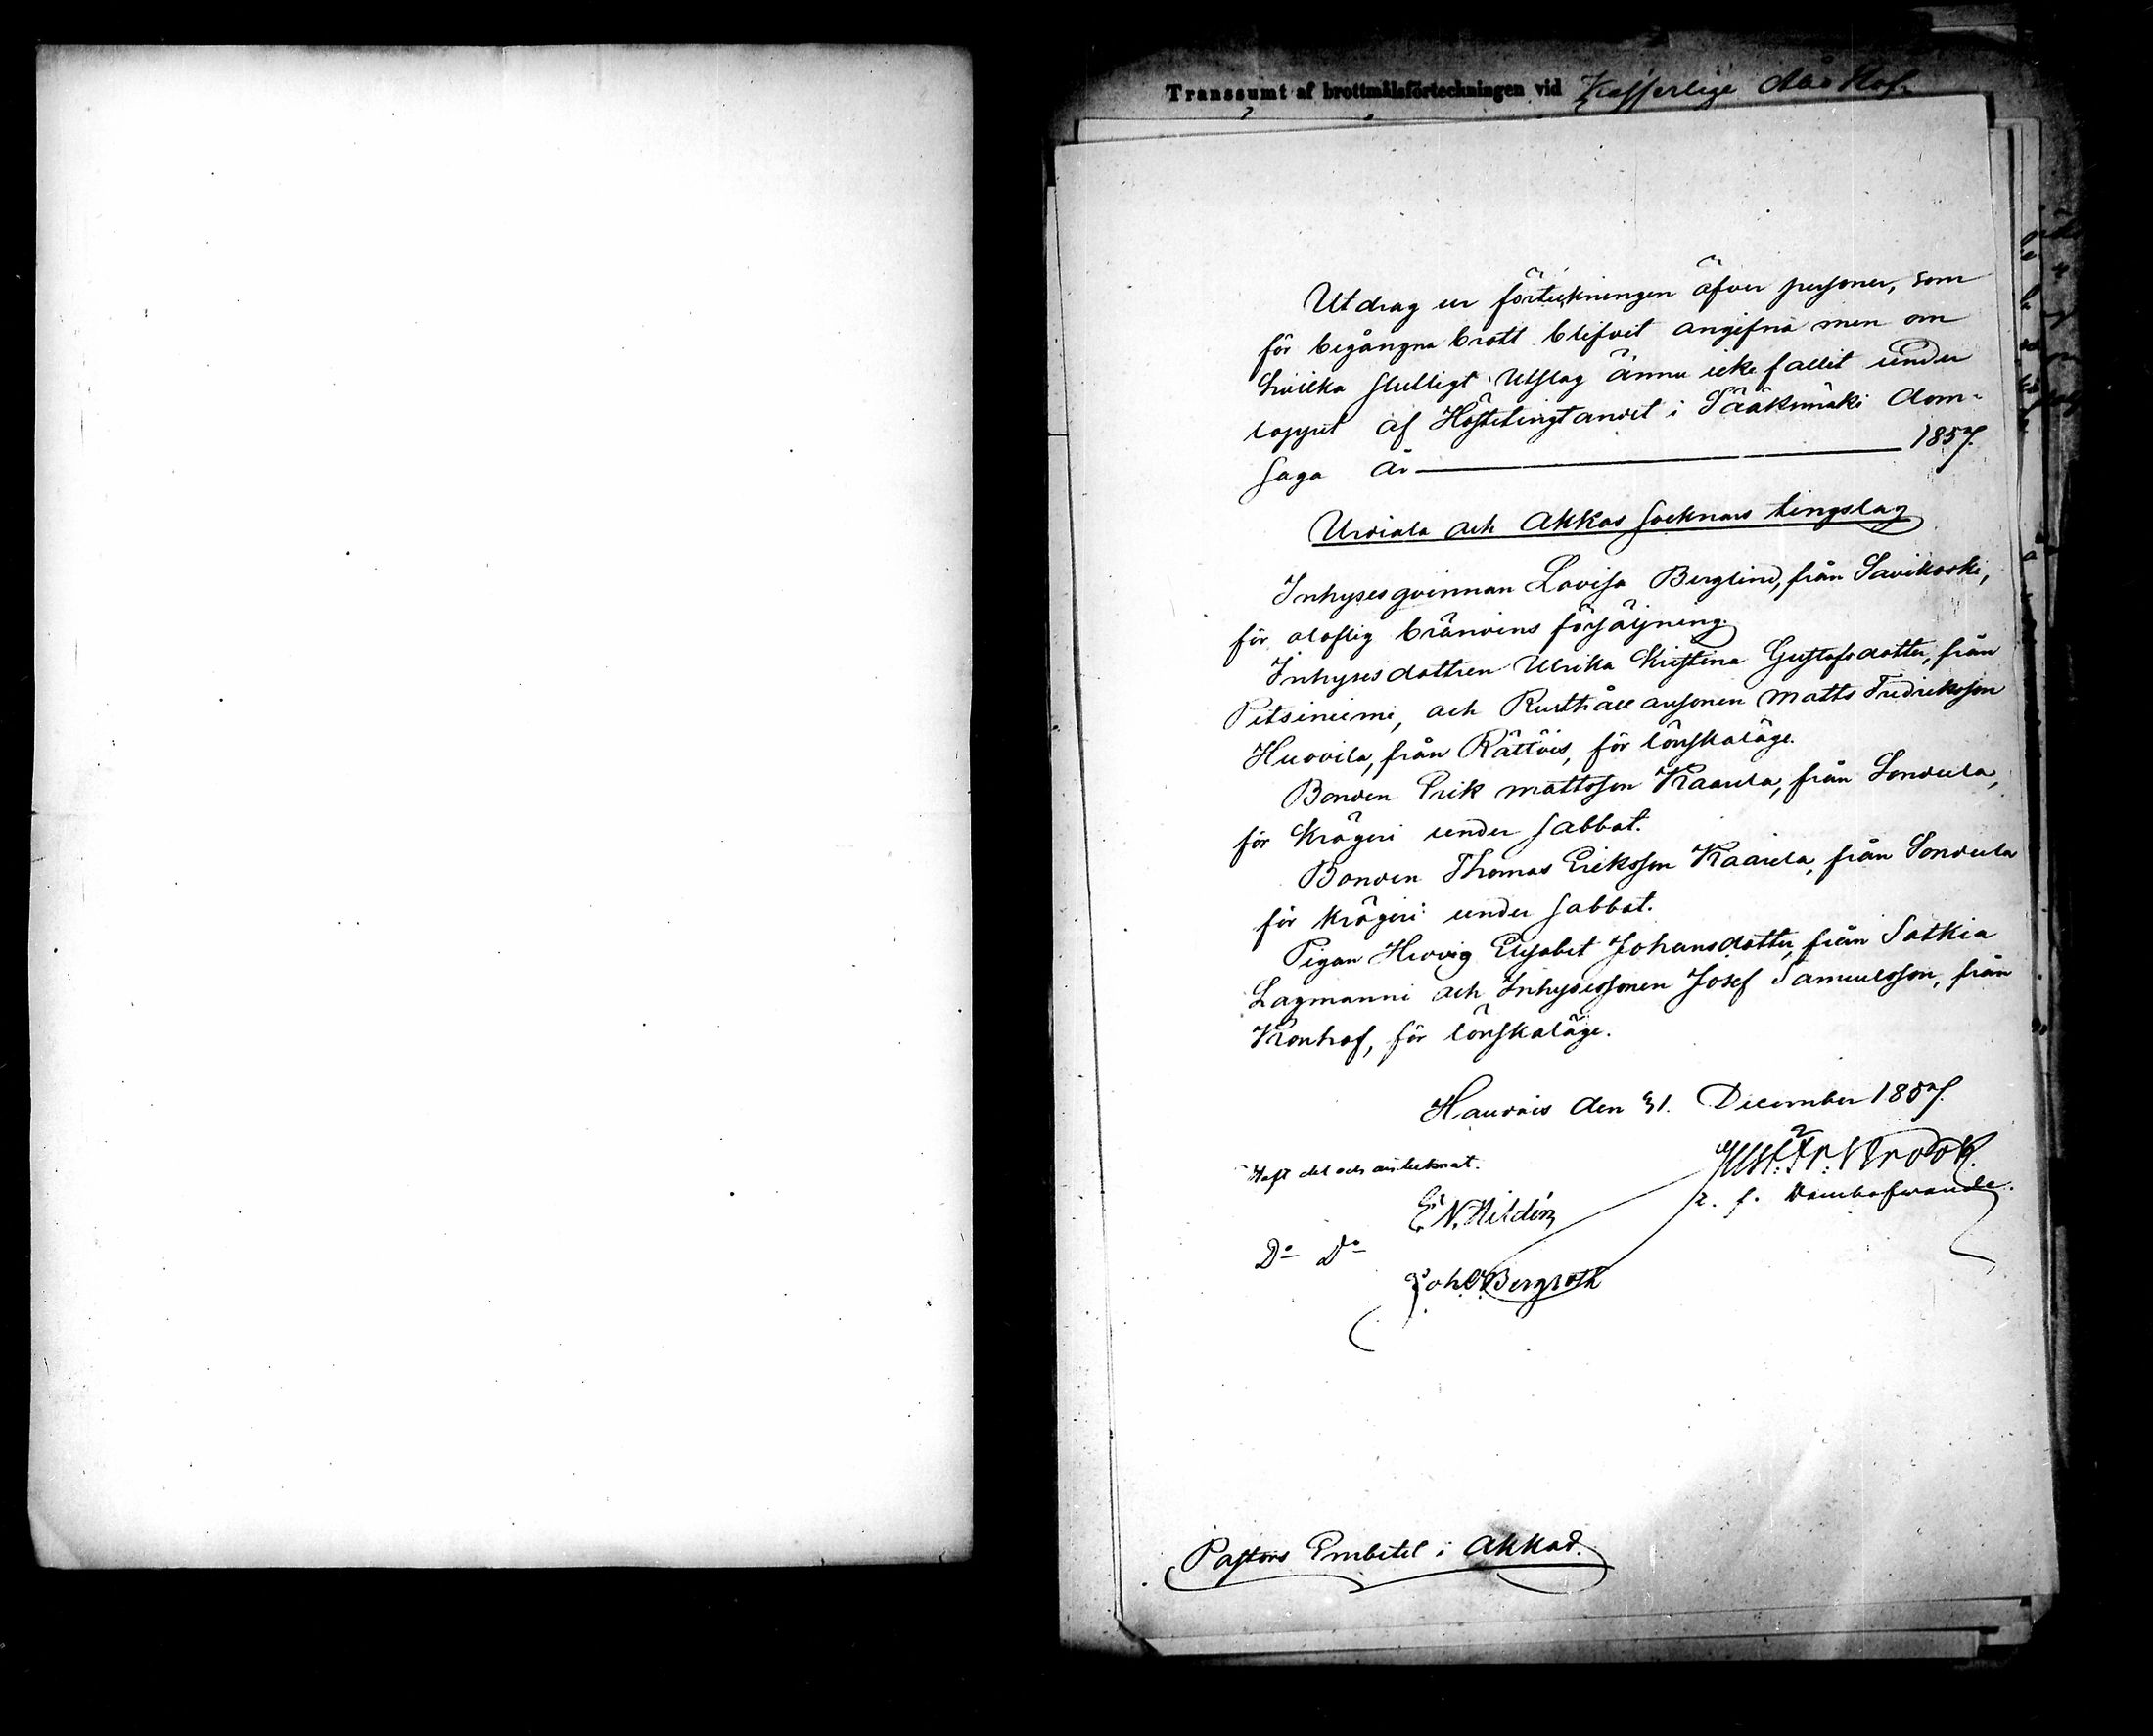 Transsumt af brottmålsförteckningen vid Kejserliga Åbo Hof-
Utdrag ur förteckningen öfver personer, som
för begångna brott blifvit angifna men om
hvilka slutligt utslag ännu icke fallit under
loppet af Hösttingtandet i Sääksmäki dom-
saga År 1857.
Urdiala och Akkas socknars tingslag
Inhysesqvinnan Lovisa Berglind, från Savikoski,
för oloflig bränvins försäljning.
Inhysesdottren Ulrika Kristina Gustafsdotter, från
Pitsiniemi, och Rusthållaresonen Matts Fredriksson
Huovila, från Rättöis, för lönskaläge.
Bonden Erik Mattsson Kaarela, från Sondula,
för krögeri under sabbat.
Bonden Thomas Eriksson Kaarela, från Sondula
för krögeri under sabbat.
Pigan Hedvig Elisabet Johansdotter från Sotkia
Lagmanni och Inhysessonen Josef Samuelsson, från
Kronhof, för lönskaläge.
Haudois den 31. December 1857.
E. N. Hildén
r. f. Domhafwande.
Do Do
Joh. Bergroth
Pastors Embetet i Akkas.